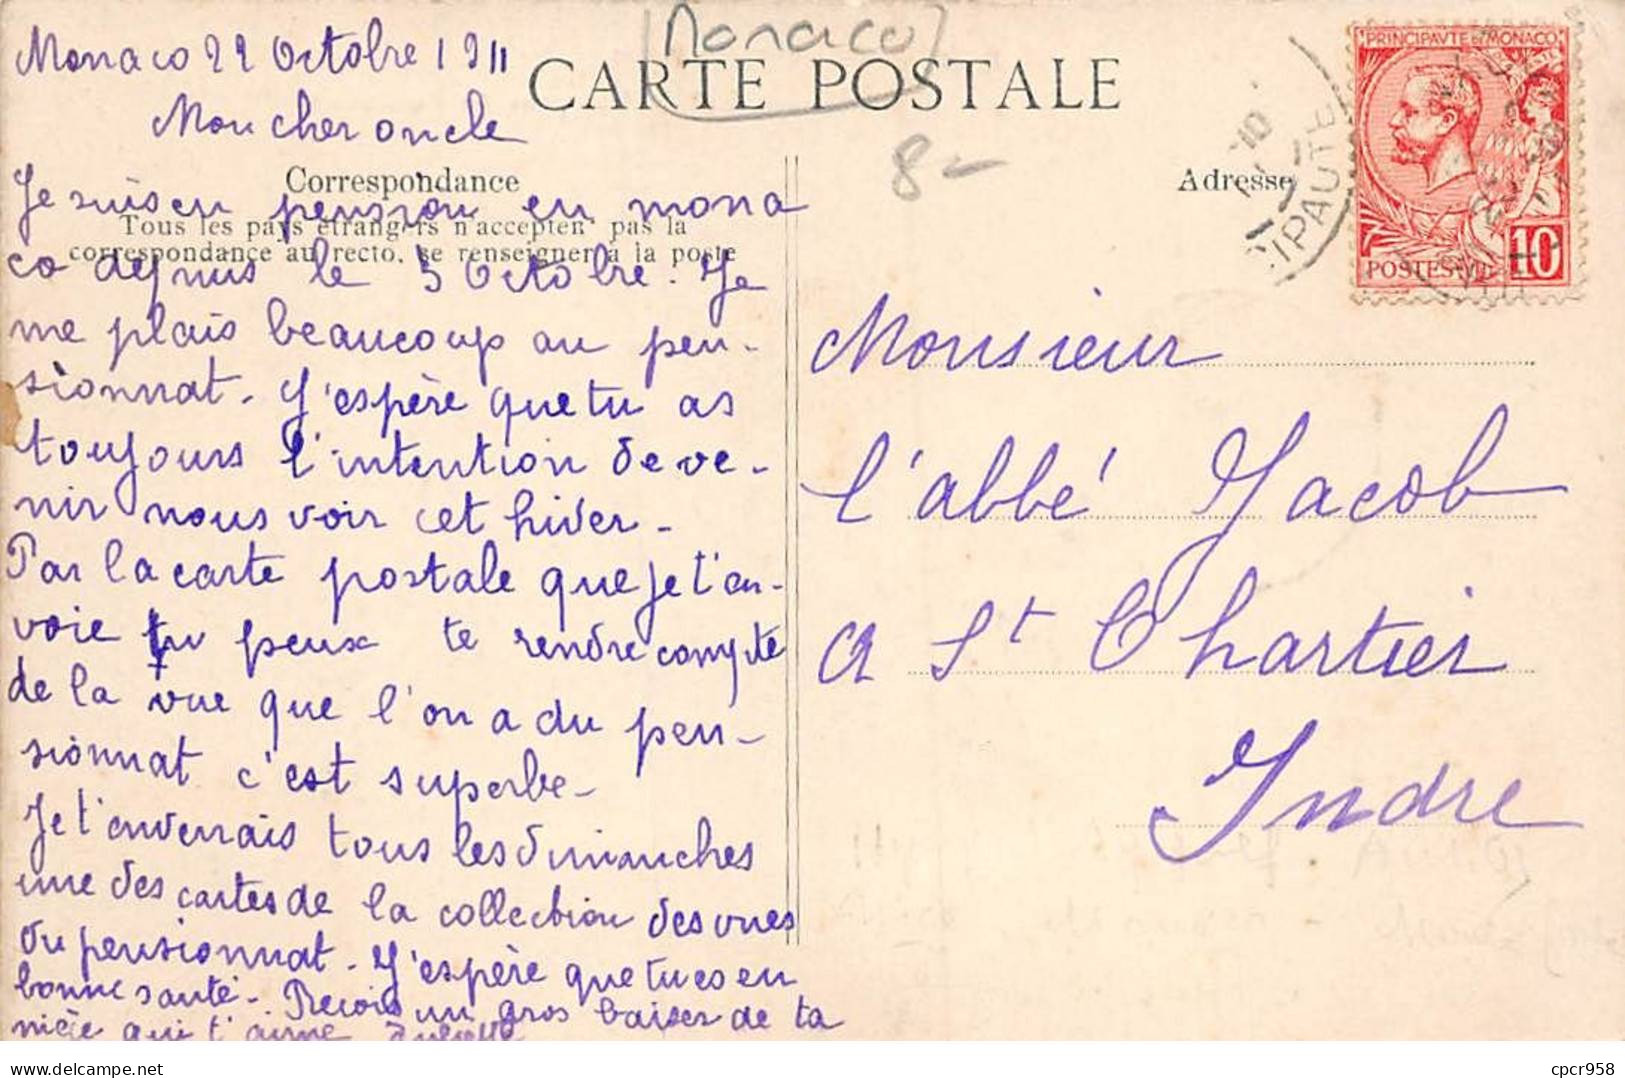 [Monaco]
Monaco 22 Octobre 1911
CARTE POSTALE
Mon cher oncle
8-
Correspondance
Tous les pays étrangers n'acceptent pas la
correspondance au recto, se renseigner à la poste
Adresse
PRINCIPAUTE DE MONACO
POSTES
10
CIPAUTE
Je suis en pension en mona
co depuis le 5 Octobre. Je
me plais beaucoup au pen-
sionnat. J'espère que tu as
toujours l'intention de ve-
nir nous voir cet hiver-
Par la carte postale que je t'en-
voie tu peux te rendre compte
de la vue que l'on a du pen-
sionnat c'est superbe-
Je t'enverrais tous les dimanches
une des cartes de la collection des vues
du pensionnat. J'espère que tu es en
bonne santé. Recois un gros baiser de ta
nièce qui t'aime Juliette
Monsieur
l'abbé Jacob
a St Chartier
Indre
delcampe.net
cpcr958